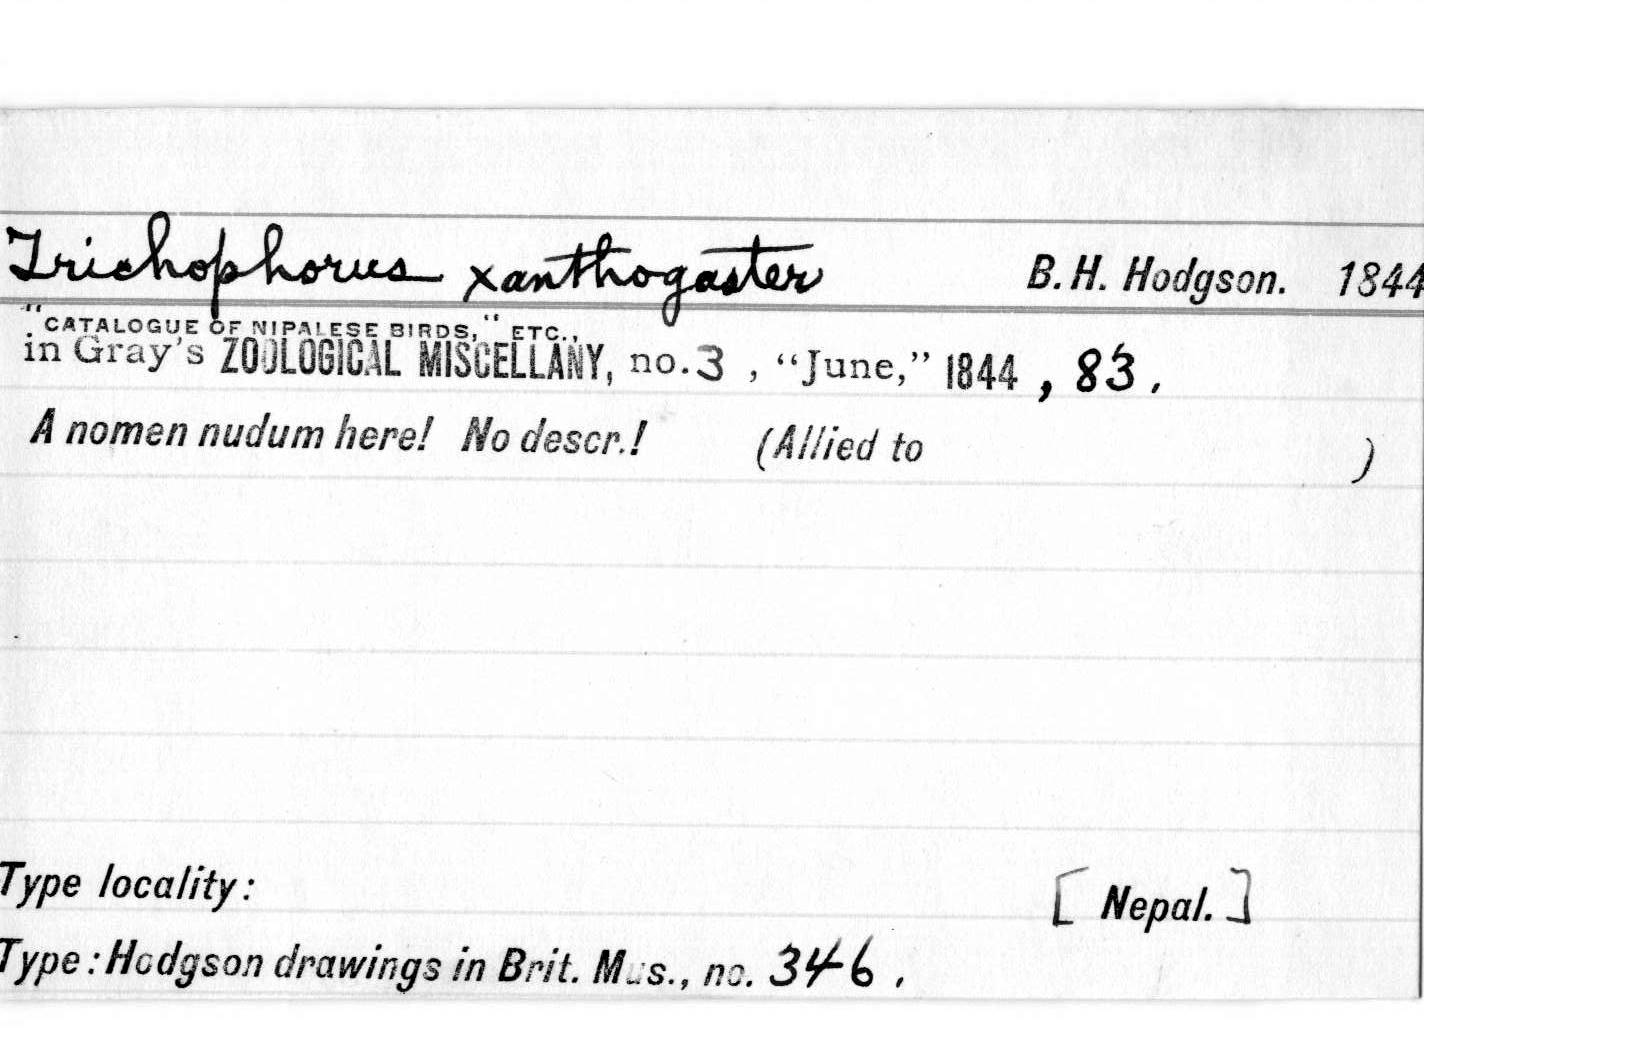 Trichophorus xanthogaster B. H. Hodgson. 1844
"CATALOGUE OF NIPALESE BIRDS," ETC.,
in Gray's ZOOLOGICAL MISCELLANY, no. 3 , "June," 1844 , 83 .
A nomen nudum here! No descr.! (Allied to )
Type locality: [ Nepal. ]
Type: Hodgson drawings in Brit. Mus., no. 346 .